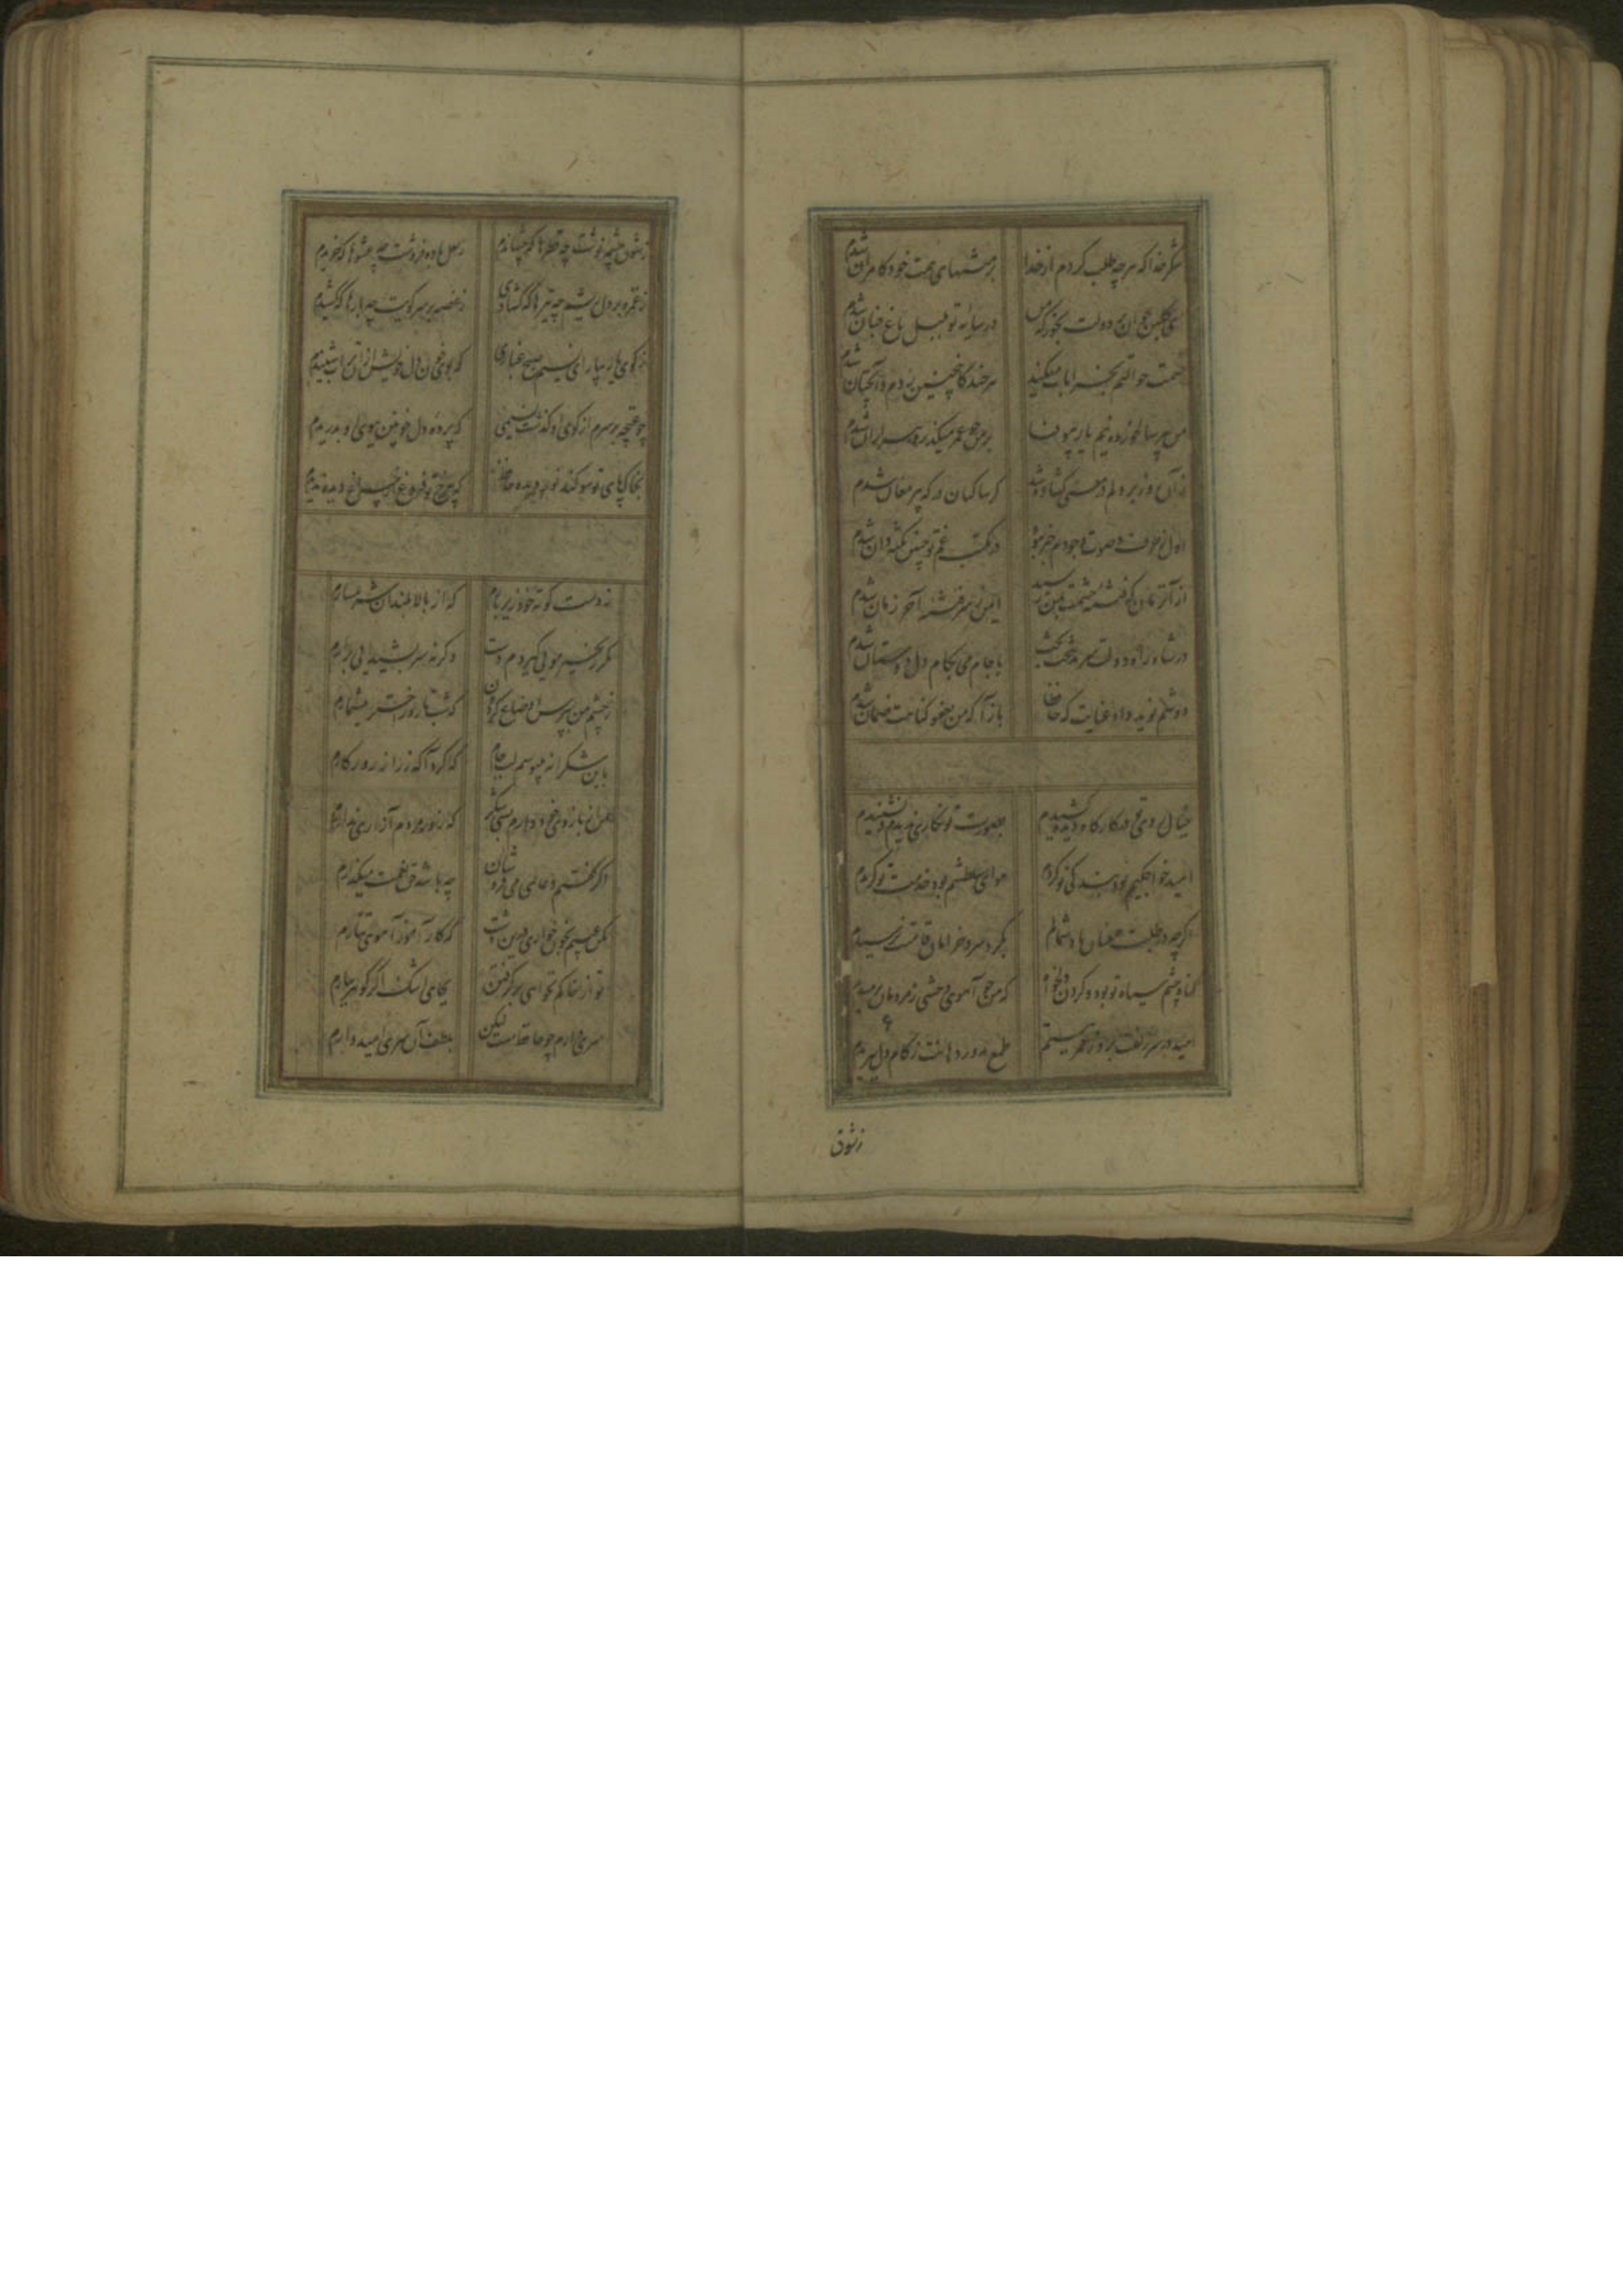 شکر خدا که هر چه طلب کردم از خدا بر منتهای همت خود کامران شدم
ای گلبن جوان بر دولت بخور که من در سایه تو بلبل باغ جنان شدم
قسمت حوالتم بخرابات میکند هر چند کاینچنین بدم و آنچنان شدم
من پیر سال و ماه نیم یار بیوفا بر من چو عمر میگذرد پیر از آن شدم
از آن روز بر دلم در معنی گشاده شد کز ساکنان درگه پیر مغان شدم
اول ز حرف و صوت وجودم خبر نبود در مکتب غم تو چنین نکته دان شدم
از آن زمان که فتنه چشمت بمن رسید ایمن ز شر فتنه آخر زمان شدم
در شاه راه دولت سرمد بتخت بخت با جام می بکام دل دوستان شدم
دوشم نوید داد عنایت که حافظا باز آ که من بعفو گناهت ضمان شدم
خیال روی تو در کارگاه دیده کشیدم بصورت تو نگاری ندیدم و نشنیدم
امید خواجگیم بود بندگی تو کردم هوای سلطنتم بود خدمت تو گزیدم
اگر چه در طلبت همعنان باد شمالم بگرد سرو خرامان قامتت نرسیدم
گناه چشم سیاه تو بود و گردن دلخواه که من چو آهوی وحشی ز آدمی برمیدم
امید در سر زلفت بروز عمر ببستم طمع بدور دهانت ز کام دل ببریدم
ز شوق
ز شوق چشمه نوشت چه قطرها که چشاندم ز لعل باده فروشت چه عشوها که خریدم
ز غمزه بر دل ریشم چه تیرها که گشادی ز غصه بر سر کویت چه بارها که کشیدم
ز کوی یار بیار ای نسیم صبح غباری که بوی خون دل خویش از آن تراب شنیدم
چو غنچه بر سرم از کوی او گذشت نسیمی که پرده دل خونین ببوی او بدریدم
بخاک پای تو سوگند نور دیده حافظ که بی رخ تو فروغ از چراغ دیده ندیدم
ز دست کوته خود زیر بارم که از بالا بلندان شرمسارم
مگر زنجیر مویی گیردم دست وگرنه سر بشیدایی برآرم
ز چشم من بپرس اوضاع گردون که شب تا روز اختر میشمارم
باین شکرانه میبوسم لب جام که کرد آگه ز راز روزگارم
من از بازوی خود دارم بسی شکر که زور مردم آزاری ندارم
اگر گفتم دعای می فروشان چه باشد حق نعمت میگذارم
مکن عیبم بخون خواری درین دشت که کار آموز آهوی تتارم
تو از خاکم نخواهی بر گرفتن بجای اشک اگر گوهر ببارم
سری دارم چو حافظ مست لیکن بلطف آن سری امیدوارم